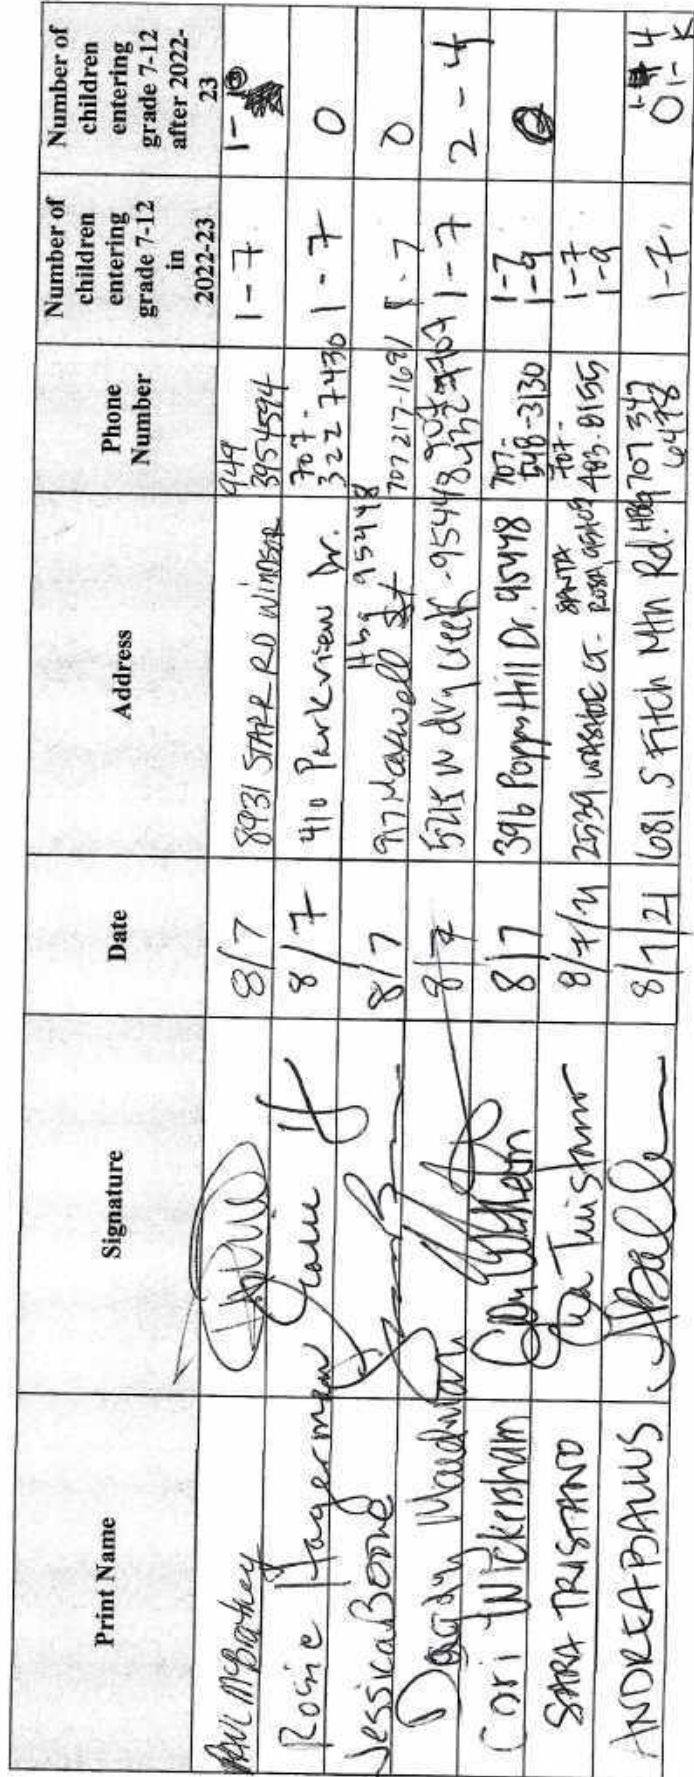 Print Name
Signature
Date
Address
Phone
Number
Number of
children
entering
grade 7-12
in
2022-23
Number of
children
entering
grade 7-12
after 2022-
23
8/7
8931 STARR RD WINDSOR
949
3954594
1-7
1-
Rosie Hagerman
8/7
410 Parkview Dr.
707-
322 7430
1-7
0
Jessica Boone
8/7
917 Maxwell St
Hbg 95448
707 217-1691
1-7
0
8/7
W dry creek - 95448
1-7
2-4
Cori Wickersham
8/7
396 Poppy Hill Dr. 95448
707-
548-3130
1-7
1-9
0
SARA TRISTANO
Sara Tristano
8/7/21
2539 WASHOE CT.
SANTA
ROSA, 95405
707-
483-8155
1-7
1-9
ANDREA BALLUS
8/7/21
681 S Fitch Mtn Rd. HBG
707 347
6478
1-7
4
1-K